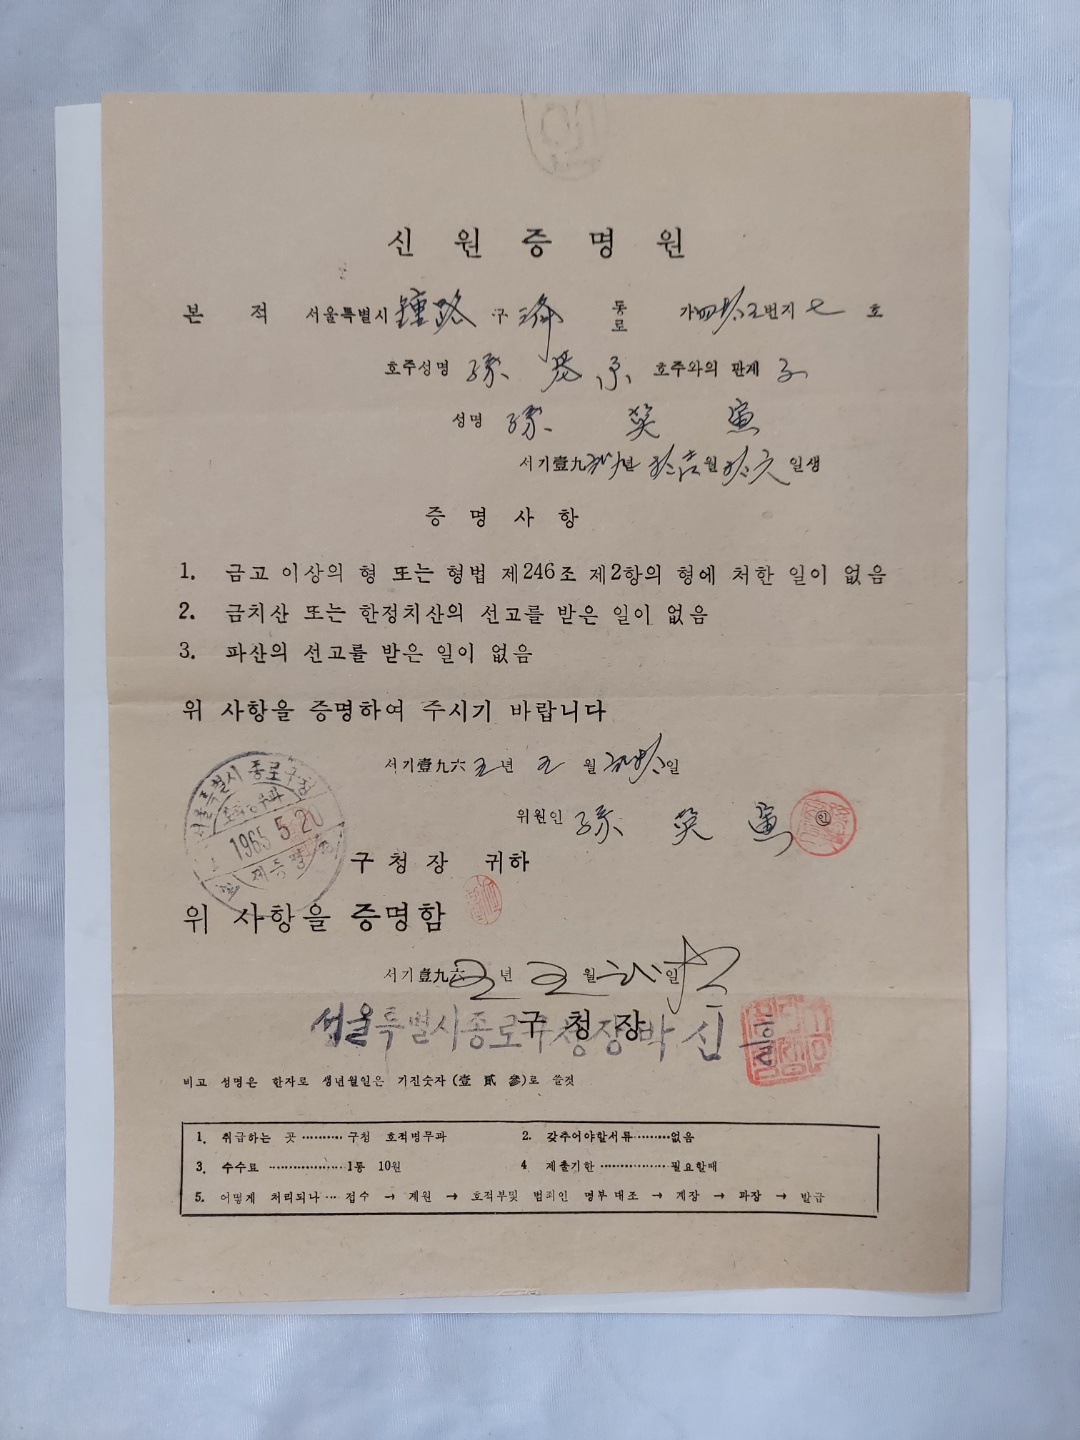 인
신 원 증 명 원
본 적 서울특별시 鍾路 구 동 로 가 번지 七 호
호주성명 孫 호주와의 관계 子
성명 孫 英 寅
서기壹九 년 월 일생
증 명 사 항
1. 금고 이상의 형 또는 형법 제246조 제2항의 형에 처한 일이 없음
2. 금치산 또는 한정치산의 선고를 받은 일이 없음
3. 파산의 선고를 받은 일이 없음
위 사항을 증명하여 주시기 바랍니다
서기壹九六 五 년 五 월 일
위원인 孫 英 寅 인
서울특별시 종로구청
1965 5.20
제증명
구 청 장 귀하
위 사항을 증명함
서기壹九六 五 년 五 월 일
구 청 장
서울특별시종로구청장 박 신
비고 성명은 한자로 생년월일은 기진숫자(壹 貳 參)로 쓸것
1. 취급하는 곳 ·········· 구청 호적병무과 2. 갖추어야할서류 ········· 없음
3. 수수료 ··················· 1통 10원 4 제출기한 ················· 필요할때
5. 어떻게 처리되나 ··· 접수 → 계원 → 호적부및 범죄인 명부 대조 → 계장 → 과장 → 발급